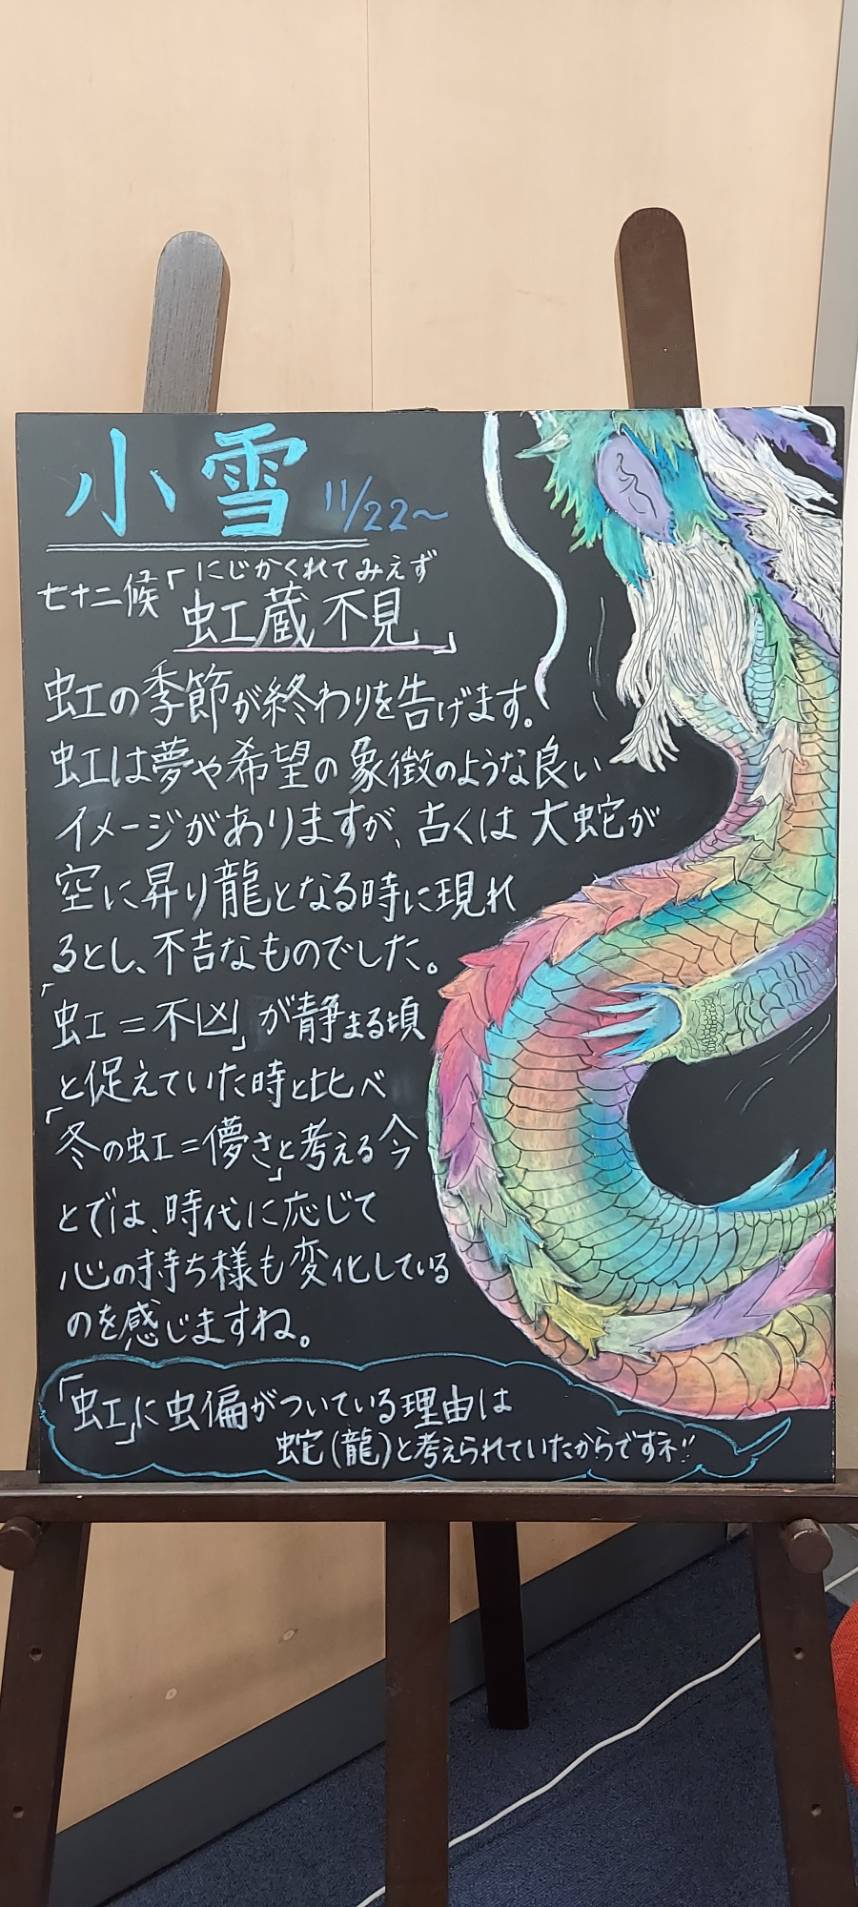 小雪 11/22～
にじかくれてみえず
七十二候「虹蔵不見」
虹の季節が終わりを告げます。
虹は夢や希望の象徴のような良い
イメージがありますが、古くは大蛇が
空に昇り龍となる時に現れ
るとし、不吉なものでした。
「虹＝不凶」が静まる頃
と捉えていた時と比べ
「冬の虹＝儚さ」と考える今
とでは、時代に応じて
心の持ち様も変化している
のを感じますね。
「虹」に虫偏がついている理由は
蛇(龍)と考えられていたからですネ!!